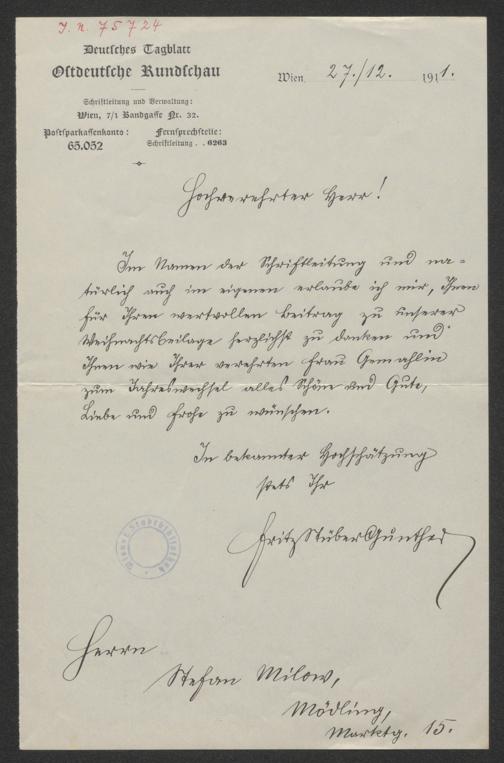 J. N. 75724
Deutsches Tagblatt
Ostdeutsche Rundschau
Schriftleitung und Verwaltung:
Wien, 7/1 Bandgasse Nr. 32.
Postsparkassenkonto:
65.052
Fernsprechstelle:
Schriftleitung . . 6263
Wien, 27./12. 1911.
Hochverehrter Herr!
Im Namen der Schriftleitung und na-
türlich auch im eigenen erlaube ich mir, Ihnen
für Ihren wertvollen Beitrag zu unserer
Weihnachtsbeilage herzlichst zu danken und
Ihnen wie Ihrer verehrten Frau Gemahlin
zum Jahreswechsel alles Schöne und Gute,
Liebe und Frohe zu wünschen.
In bekannter Hochschätzung
stets Ihr
Fritz Stüber Gunther
Wiener Stadtbibliothek
Herrn
Stefan Milow,
Mödling,
Marktg. 15.